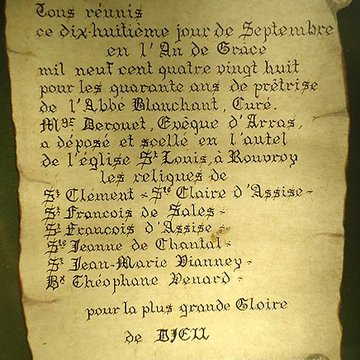 Tous réunis
ce dix-huitième jour de Septembre
en l'An de Grâce
mil neuf cent quatre vingt huit
pour les quarante ans de prêtrise
de l'Abbé Blanchant, Curé.
Mgr Derouet, Evêque d'Arras,
a déposé et scellé en l'autel
de l'église St Louis, à Rouvroy
les reliques de
St Clément - Ste Claire d'Assise -
St Francois de Sales -
St Francois d'Assise -
Ste Jeanne de Chantal -
St Jean-Marie Vianney -
Bx Théophane Venard -
pour la plus grande Gloire
de DIEU